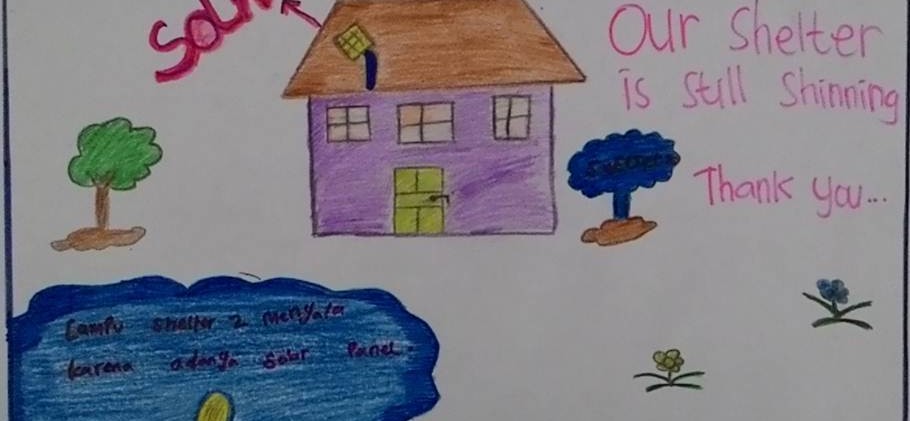 Our Shelter
is Still Shinning
Thank you...
Lampu Shelter 2 Menyala
karena adanya Solar Panel.